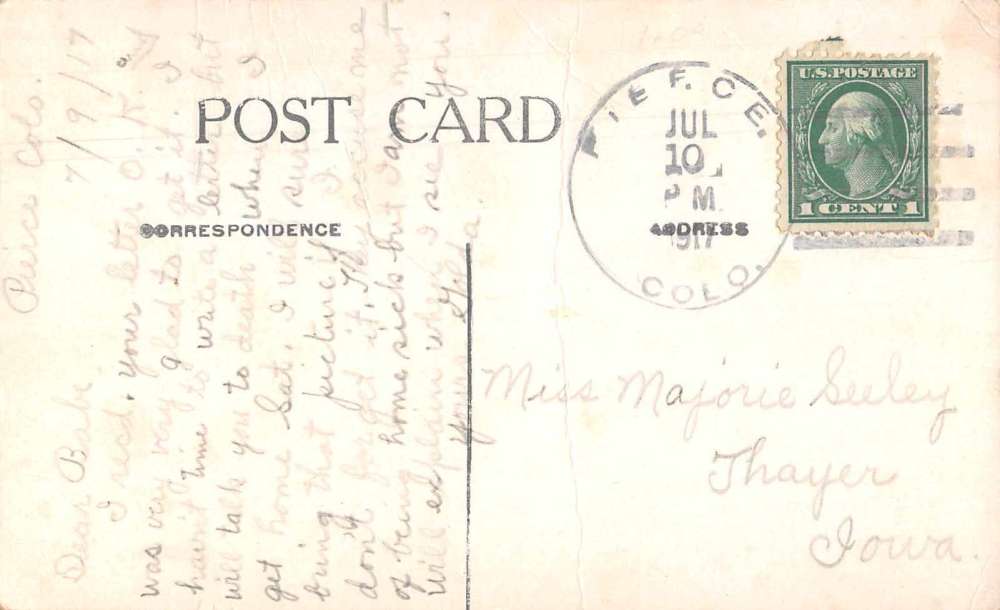 POST CARD
CORRESPONDENCE
ADDRESS
PIERCE.
JUL
10
P M
1917
COLO.
U.S. POSTAGE
1 CENT 1
Peirce Colo.
7/9/17
Dear Babe
I recd. your letter O.K. &
was very very glad to get it. I
haven't time to write a letter but
will talk you to death when I
get home Sat. I will sure
bring that picture if I
don't forget it. They accuse me
of being home sick but I am not
will explain when I see you.
Yours
Miss Majorie Seeley
Thayer
Iowa.